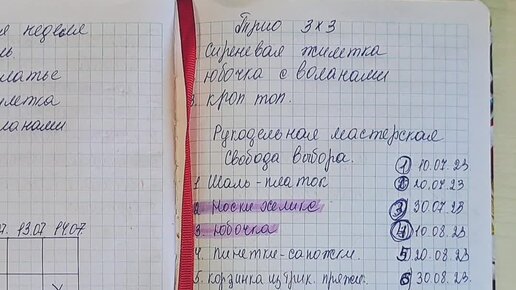 я неделя
ль
латье
летка
ланами
7. 13.07 14.07
Трио 3х3
сиреневая жилетка
юбочка с воланами
3. кроп топ.
Рукодельная мастерская
Свобода выбора.
1 10.07.23
1 Шаль-платок 2 20.07.23
2. Носки хеликс 3 30.07.23
3. юбочка 4 10.08.23
4. пинетки-сапожки. 5 20.08.23
5. корзинка из трик. пряжи. 6 30.08.23